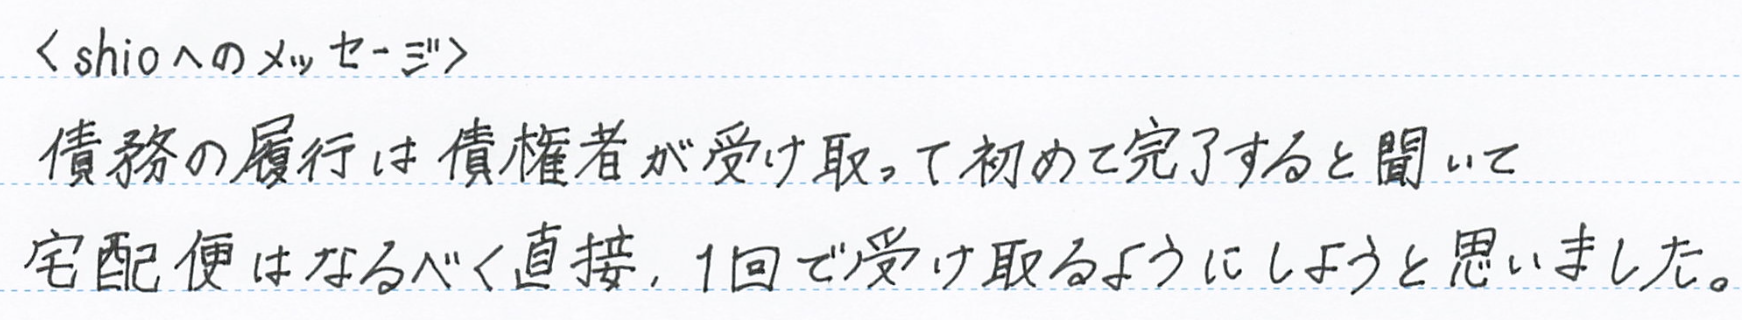 <shioへのメッセージ>
債務の履行は債権者が受け取って初めて完了すると聞いて
宅配便はなるべく直接、1回で受け取るようにしようと思いました。